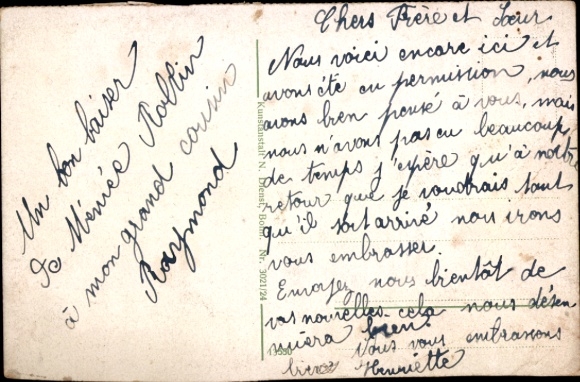 Un bon baiser
de Mémée Rollin
à mon grand cousin
Raymond
Kunstanstalt N. Dienst, Bonn. Nr. 3021/24
Chers Frère et Sœur
Nous voici encore ici et
avons été en permission, nous
avons bien pensé à vous, mais
nous n'avons pas eu beaucoup
de temps j'espère qu'à notre
retour que je voudrais tant
qu'il soit arrivé nous irons
vous embrasser.
Envoyez nous bientôt de
vos nouvelles cela nous désen
nuiera bien.
Nous vous embrassons
bien
Henriette